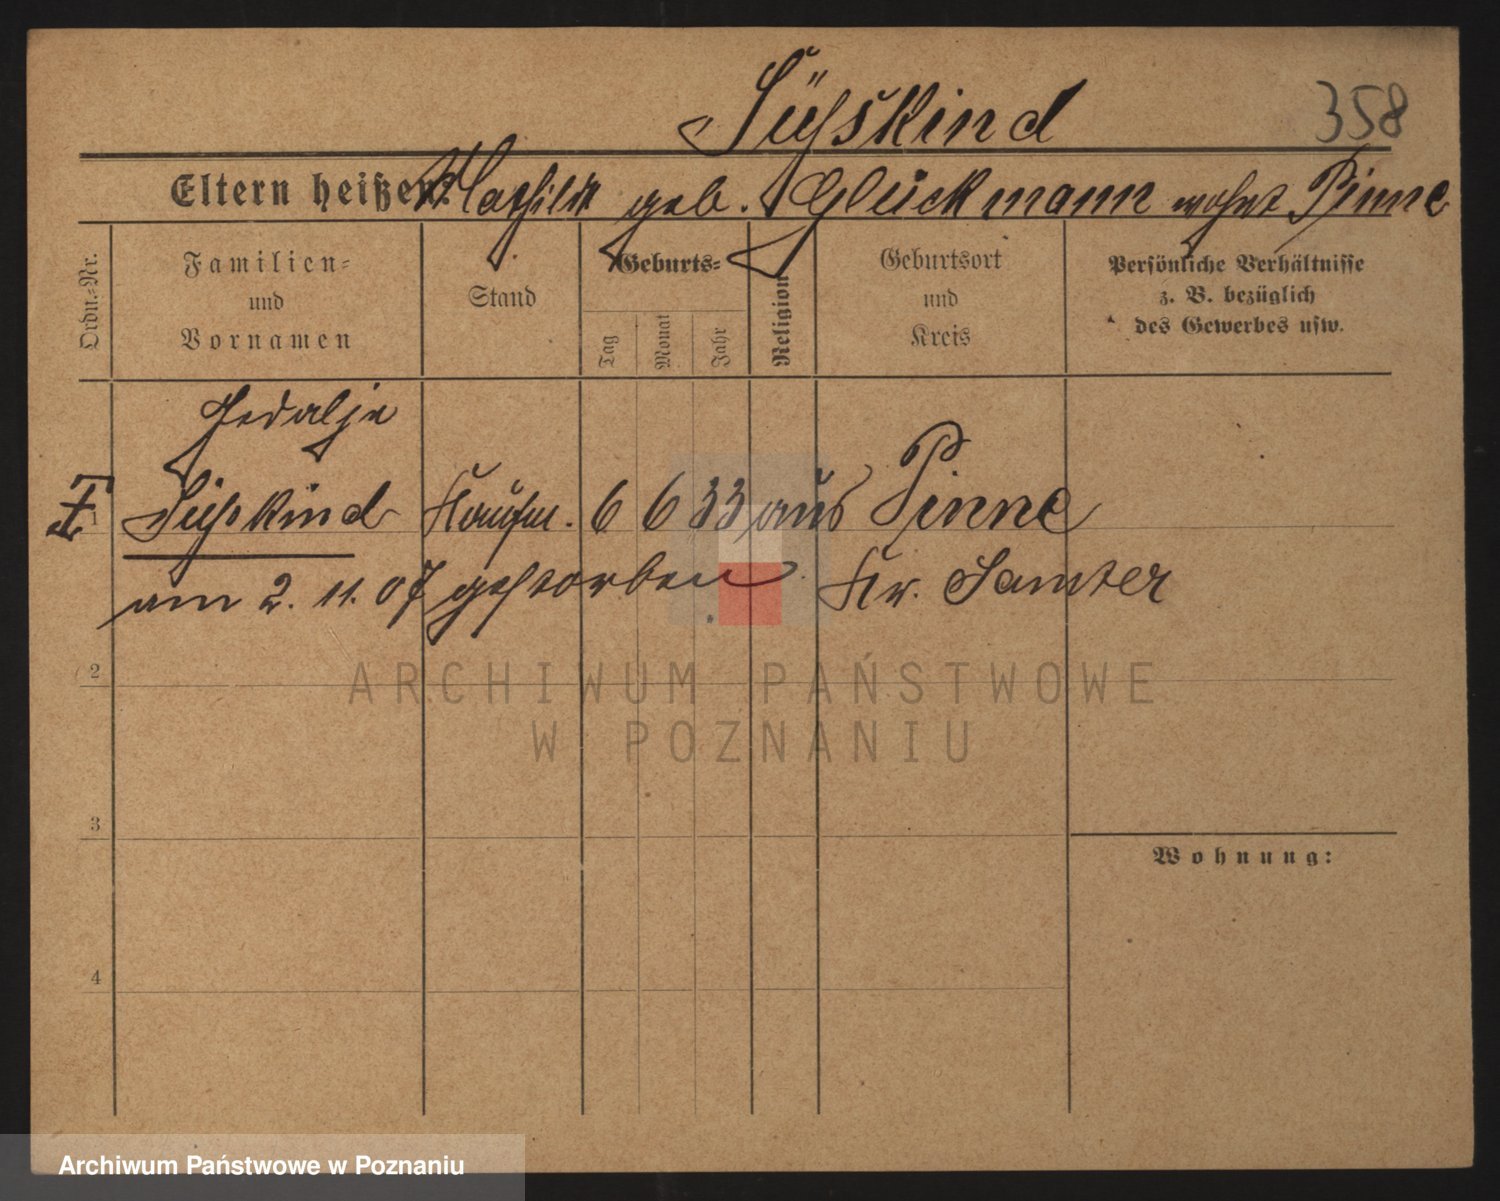 Süßskind 358
Eltern heißen: Mathilde geb. Glückmann wohnt Pinne
Ordn.-Nr.
Familien-
und
Vornamen
Stand
Geburts-
Tag
Monat
Jahr
Religion
Geburtsort
und
Kreis
Persönliche Verhältnisse
z. B. bezüglich
des Gewerbes usw.
Gedalje
1 Süßskind Kaufm. 6 6 33 aus Pinne
am 2. 11. 07 gestorben Kr. Samter
2
ARCHIWUM PAŃSTWOWE
W POZNANIU
3
Wohnung:
4
Archiwum Państwowe w Poznaniu